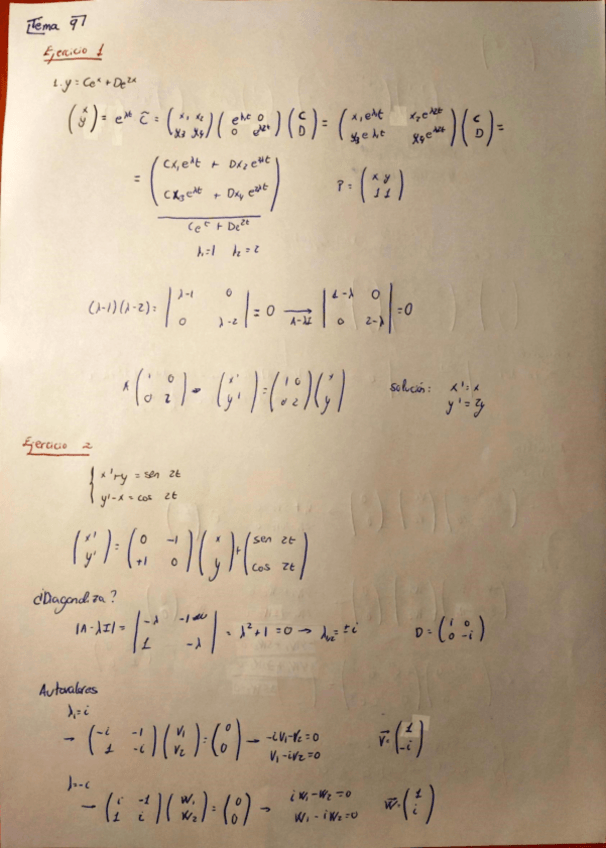 Tema 97
Ejercicio 1
1. y = Ce^x + De^2x
(x y) = e^λt C̄ = (x₁ x₂ x₃ x₄)(e^λt 0 0 e^λ2t)(C D) = (x₁e^λt x₂e^λ2t x₃e^λ1t x₄e^λ2t)(C D) =
= (Cx₁e^λt + Dx₂e^λ2t Cx₃e^λt + Dx₄e^λ2t) P = (x y 1 1)
Ce^t + De^2t
λ=1 λ₂=2
(λ-1)(λ-2) = |λ-1 0 0 λ-2| = 0 → A-λI |1-λ 0 0 2-λ| = 0
(1 0 0 2) (x' y') = (1 0 0 2)(x y) solución: x' = x
y' = 2y
Ejercicio 2
{ x'+y = sen 2t
y'-x = cos 2t
(x' y') = (0 -1 +1 0)(x y) + (sen 2t cos 2t)
¿Diagonaliza?
|A-λI| = |-λ -1 1 -λ| = λ²+1 = 0 → λ₁/₂ = ±i D = (i 0 0 -i)
Autovalores
λ₁=i
→ (-i -1 1 -i)(v₁ v₂) = (0 0) → -iv₁-v₂=0 v₁-iv₂=0 v̄ = (1 -i)
λ=-i
→ (i -1 1 i)(w₁ w₂) = (0 0) → iw₁-w₂=0 w₁-iw₂=0 w̄ = (1 i)